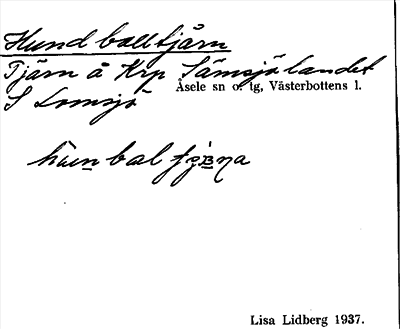 Hundballtjärn
Tjärn å Krp Sämsjölandet
Åsele sn o. tg, Västerbottens l.
S Lomsjö
Lisa Lidberg 1937.